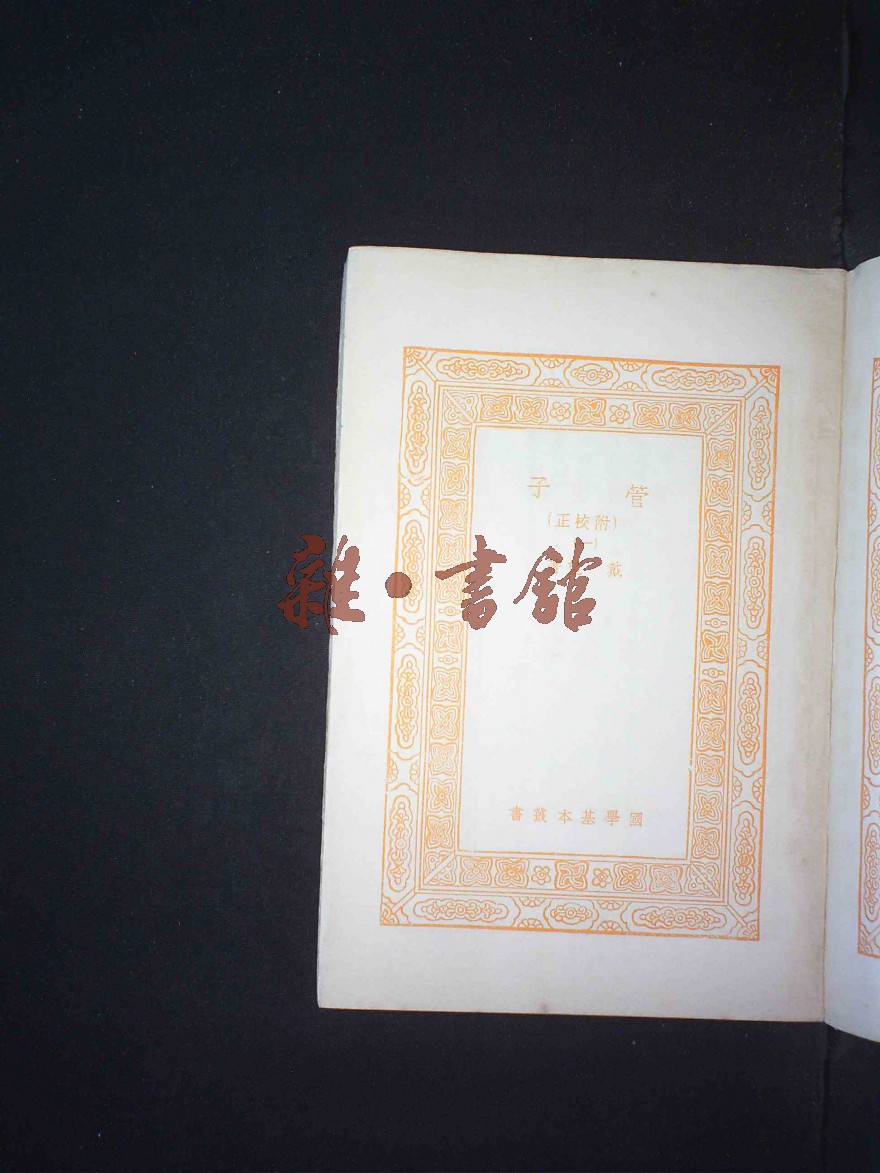 管子
(附校正)
(一)
戴
國學基本叢書
雜·書館